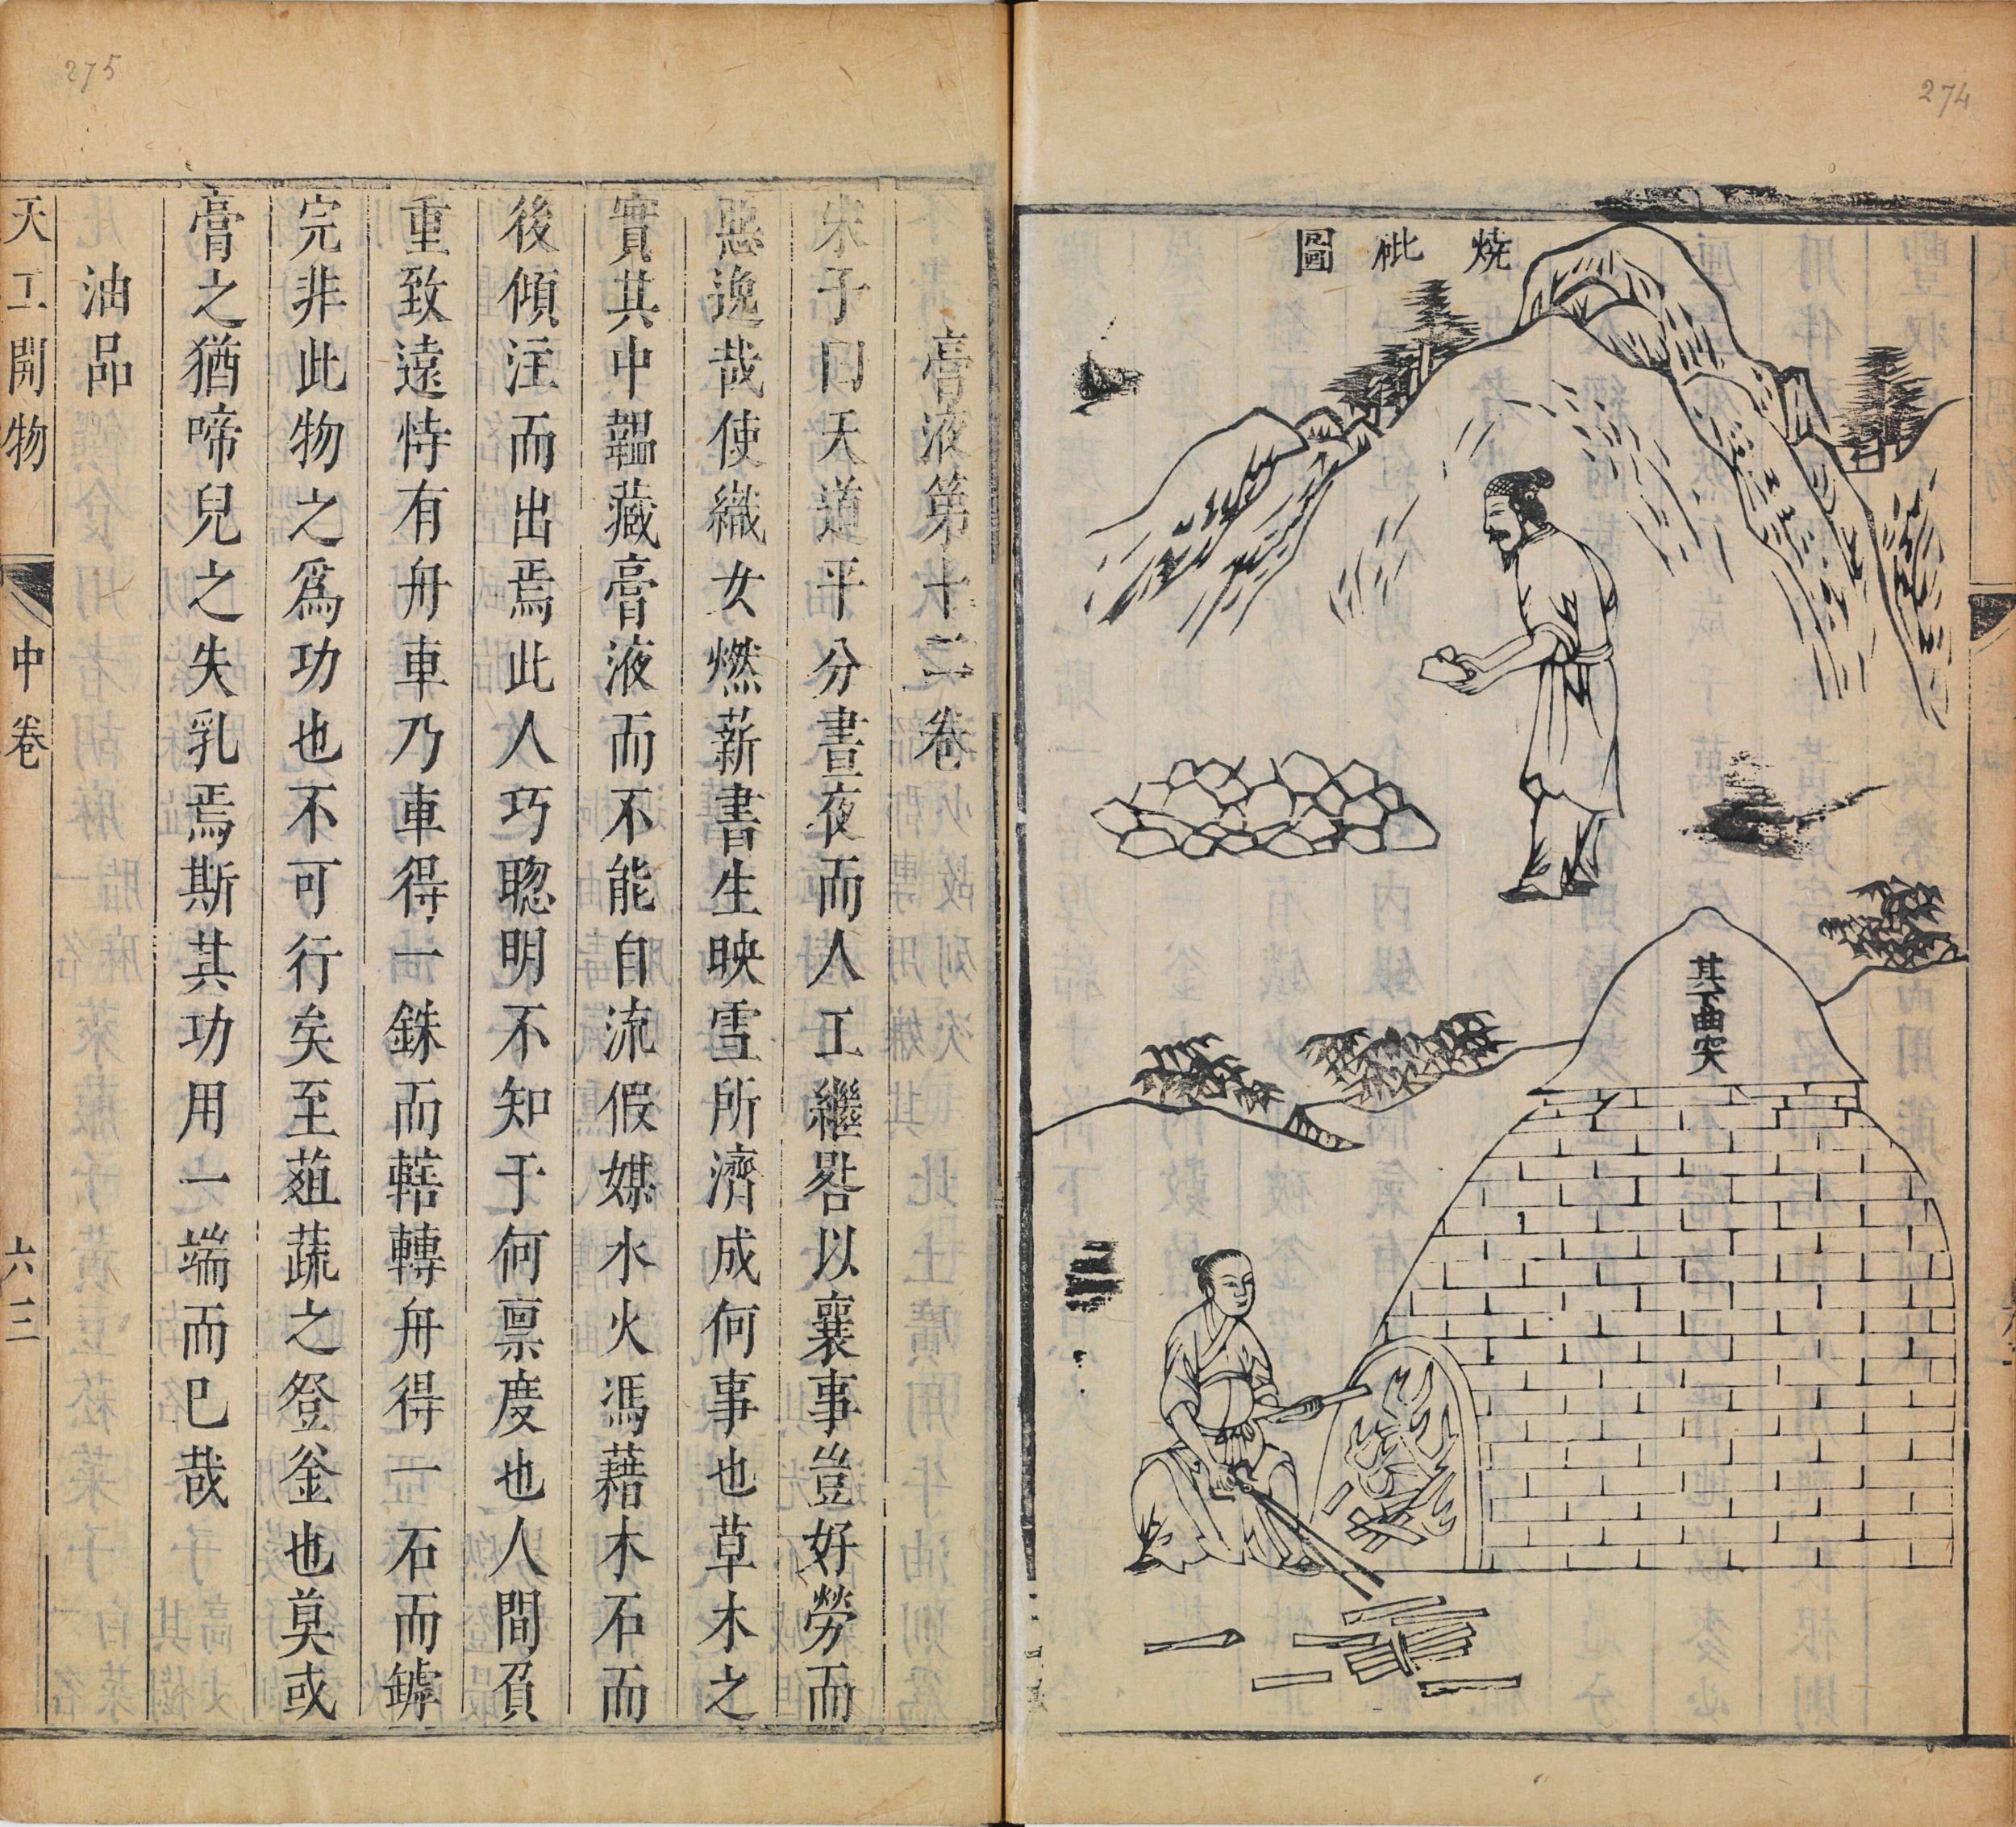 274
燒砒圖
其下曲突
275
膏液第十二卷
宋子曰天道平分晝夜而人工繼晷以襄事豈好勞而
惡逸哉使織女燃薪書生映雪所濟成何事也草木之
實其中韞藏膏液而不能自流假媒水火馮藉木石而
後傾注而出焉此人巧聰明不知于何禀度也人間負
重致遠恃有舟車乃車得一銖而轄轉舟得一石而罅
完非此物之爲功也不可行矣至菹蔬之登釜也莫或
膏之猶啼兒之失乳焉斯其功用一端而巳哉
油品
天工開物
中卷
六三